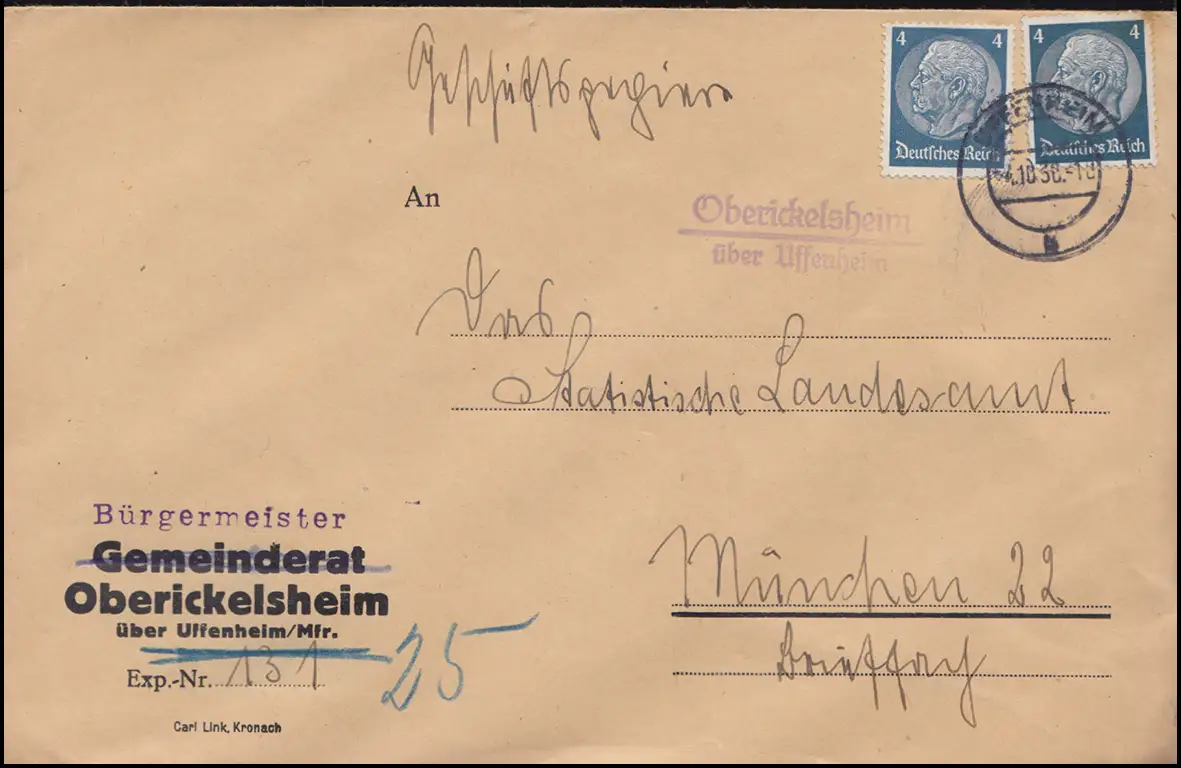 Geschäftspapiere
4 4
Deutsches Reich
4 4
Deutsches Reich
UFFENHEIM
a
An
Oberickelsheim
über Uffenheim
Das
Statistische Landesamt
München 22
Brieffach
Bürgermeister
Gemeinderat
Oberickelsheim
über Uffenheim/Mfr.
Exp.-Nr. 131
25
Carl Link, Kronach